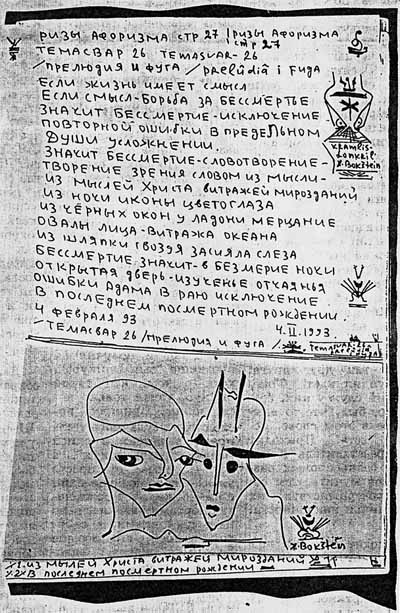 РИЗЫ АФОРИЗМА СТР 27 / РИЗЫ АФОРИЗМА СТР 27
ТЕМАСВАР 26 TEMASVAR-26
/ПРЕЛЮДИЯ И ФУГА / PRELÛDIÂ I FUGA
ЕСЛИ ЖИЗНЬ ИМЕЕТ СМЫСЛ
ЕСЛИ СМЫСЛ-БОРЬБА ЗА БЕССМЕРТЬЕ
ЗНАЧИТ БЕССМЕРТИЕ-ИСКЛЮЧЕНИЕ
ПОВТОРНОЙ ОШИБКИ В ПРЕДЕЛЬНОМ
ДУШИ УСЛОЖНЕНИИ.
ЗНАЧИТ БЕССМЕРТИЕ-СЛОВОТВОРЕНИЕ-
ТВОРЕНИЕ ЗРЕНИЯ СЛОВОМ ИЗ МЫСЛИ-
ИЗ МЫСЛЕЙ ХРИСТА ВИТРАЖЕЙ МИРОЗДАНИЙ
ИЗ НОЧИ ИКОНЫ ЦВЕТОГЛАЗА
ИЗ ЧЁРНЫХ ОКОН У ЛАДОНИ МЕРЦАНИЕ
ОВАЛЫ ЛИЦА-ВИТРАЖА ОКЕАНА
ИЗ ШЛЯПКИ ГВОЗДЯ ЗАСИЯЛА СЛЕЗА
БЕССМЕРТИЕ ЗНАЧИТ-В БЕЗМЕРИЕ НОЧИ
ОТКРЫТАЯ ДВЕРЬ-ИЗУЧЕНЬЕ ОТЧАЯНЬЯ
ОШИБКИ АДАМА В РАЮ ИСКЛЮЧЕНИЕ
В ПОСЛЕДНЕМ ПОСМЕРТНОМ РОЖДЕНИИ.
4 ФЕВРАЛЯ 93 4.II.1993
/ТЕМАСВАР 26 /ПРЕЛЮДИЯ И ФУГА / TEMASVAR-26
I. BOKŠTEIN
I. BOKŠTEIN
X1. ИЗ МЫСЛЕЙ ХРИСТА ВИТРАЖЕЙ МИРОЗДАНИЙ
X2X В ПОСЛЕДНЕМ ПОСМЕРТНОМ РОЖДЕНИИ